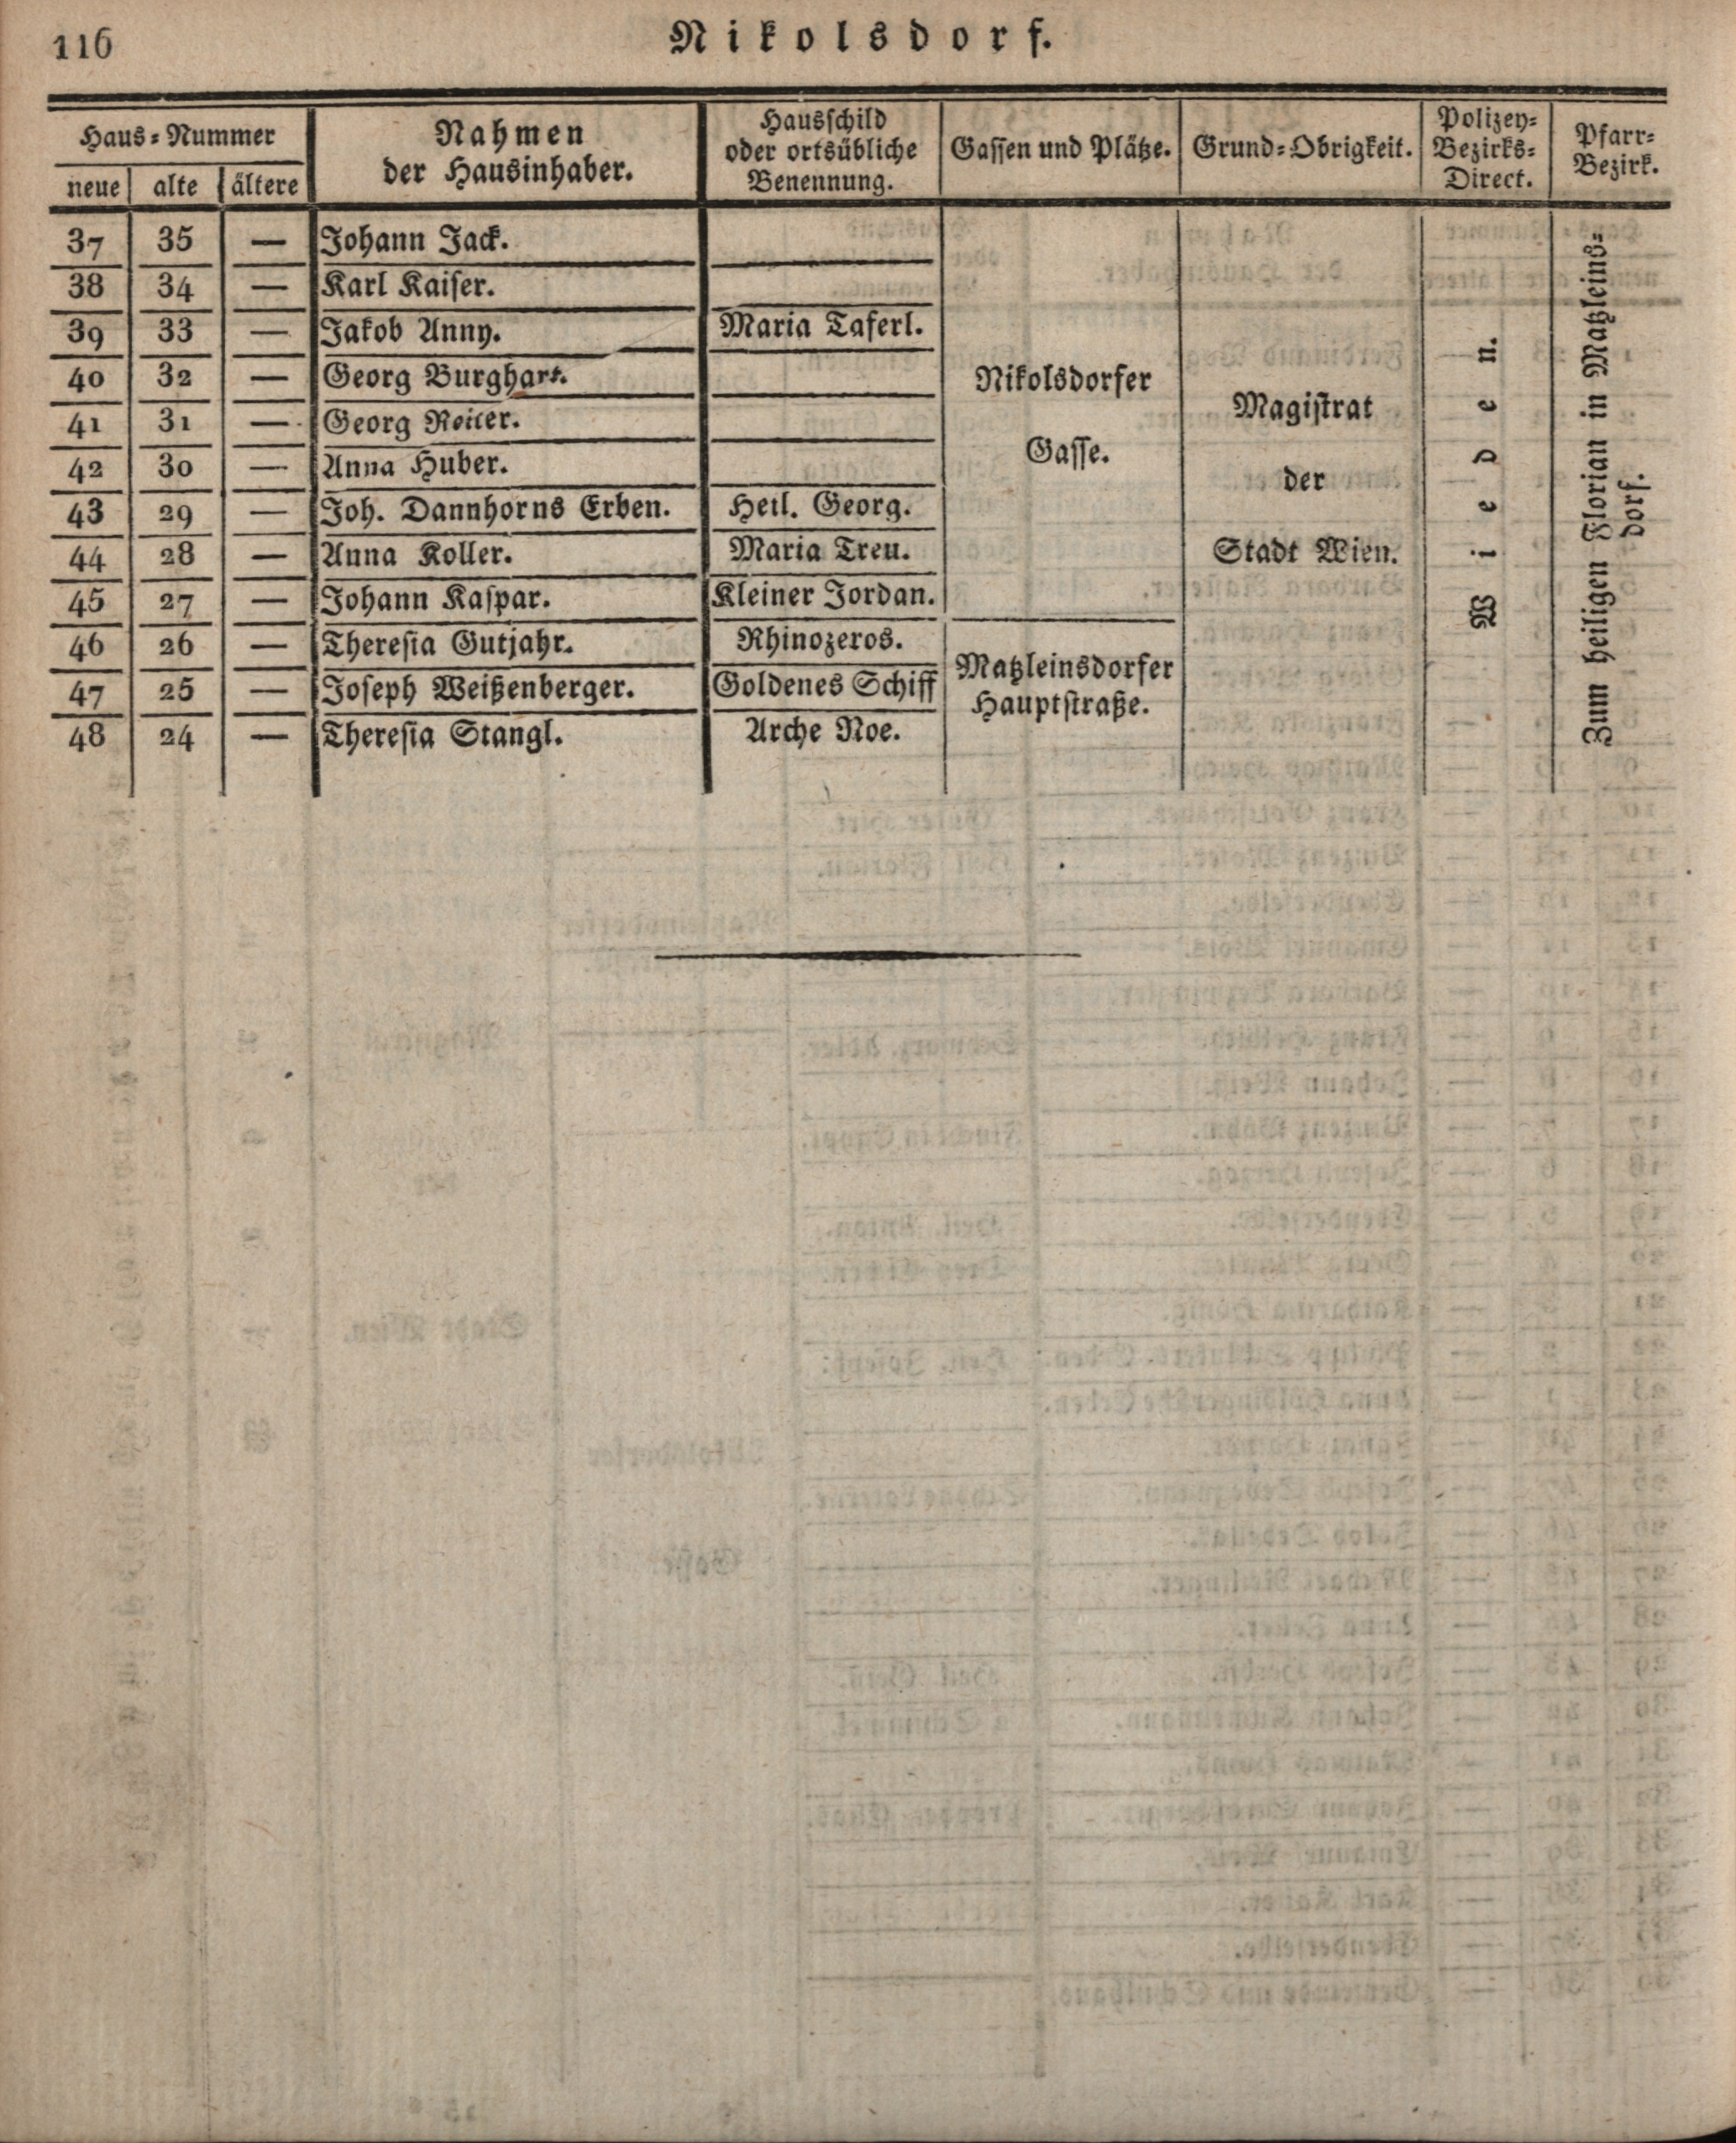 116
Nikolsdorf.
Haus-Nummer
neue alte ältere
Nahmen
der Hausinhaber.
Hausschild
oder ortsübliche
Benennung.
Gassen und Plätze.
Grund-Obrigkeit.
Polizey-
Bezirks-
Direct.
Pfarr-
Bezirk.
37 35 — Johann Jack.
38 34 — Karl Kaiser.
39 33 — Jakob Anny. Maria Taferl.
40 32 — Georg Burghart.
41 31 — Georg Reiter.
42 30 — Anna Huber.
43 29 — Joh. Dannhorns Erben. Heil. Georg.
44 28 — Anna Koller. Maria Treu.
45 27 — Johann Kaspar. Kleiner Jordan.
46 26 — Theresia Gutjahr. Rhinozeros.
47 25 — Joseph Weißenberger. Goldenes Schiff
48 24 — Theresia Stangl. Arche Noe.
Nikolsdorfer
Gasse.
Matzleinsdorfer
Hauptstraße.
Magistrat
der
Stadt Wien.
Wieden.
Zum heiligen Florian in Matzleins-
dorf.